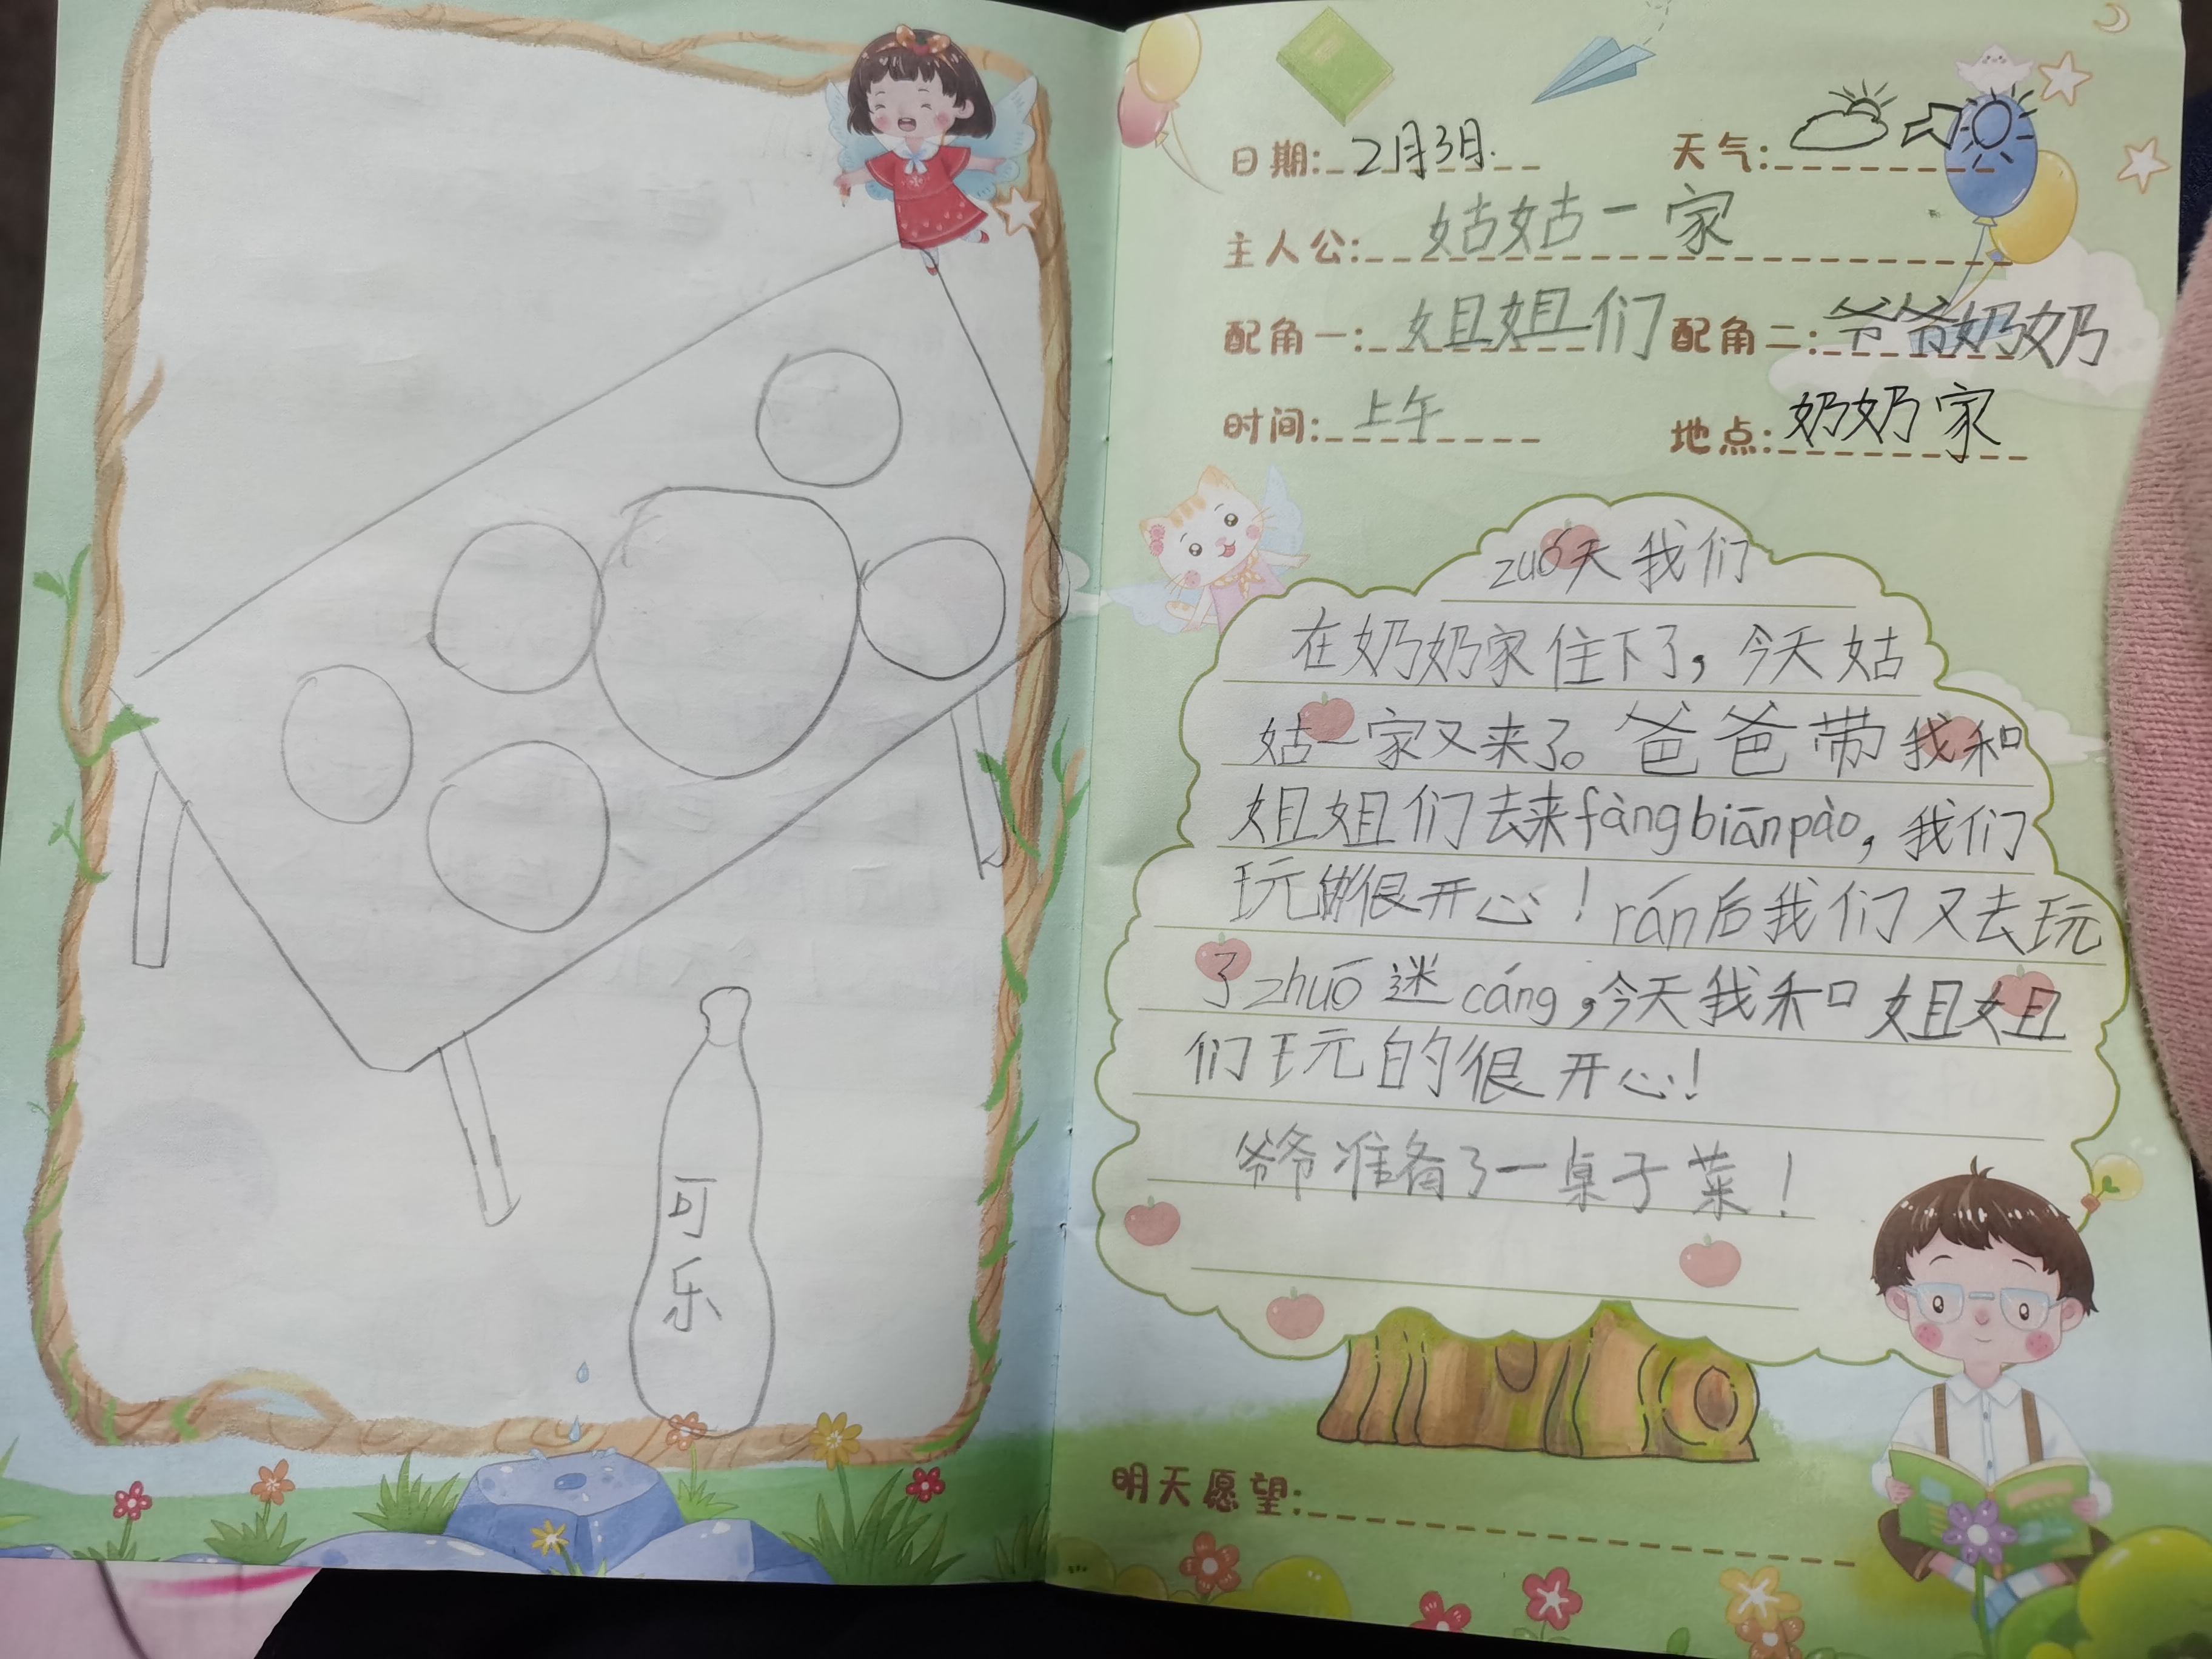 可
乐
日期: 2月3日. 天气:
主人公: 姑姑一家
配角一: 姐姐们 配角二: 爷爷奶奶
时间: 上午 地点: 奶奶家
zuó天我们
在奶奶家住下了,今天姑
姑一家又来了。爸爸带我和
姐姐们去来fàngbiānpào,我们
玩 很开心!rán后我们又去玩
了zhuō迷cáng,今天我和姐姐
们玩的很开心!
爷爷准备了一桌子菜!
明天愿望: